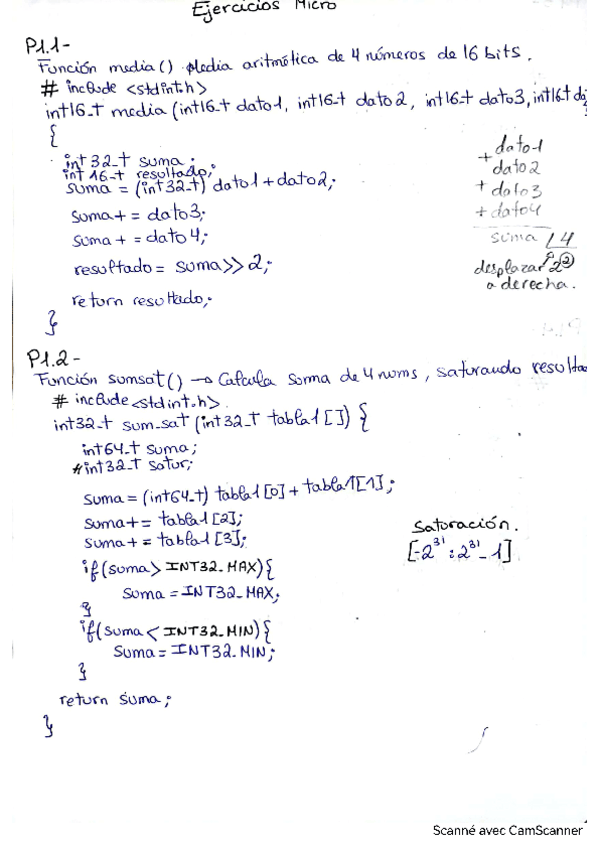 Ejercicios Micro
P1.1-
Función media() Media aritmética de 4 números de 16 bits.
# include <stdint.h>
int16_t media (int16_t dato1, int16_t dato2, int16_t dato3, int16_t da
{
int32_t suma;
int16_t resultado;
suma = (int32_t) dato1 + dato2;
suma += dato3;
suma += dato4;
resultado = suma >> 2;
return resultado;
}
dato1
+ dato2
+ dato3
+ dato4
suma / 4
desplazar 2
a derecha.
P1.2-
Función sumsat() → Calcula soma de 4 nums, saturando resulta
# include <stdint.h>
int32_t sum_sat (int32_t tabla1[]) {
int64_t suma;
#int32_t satur;
suma = (int64_t) tabla1[0] + tabla1[1];
suma += tabla1[2];
suma += tabla1[3];
if (suma > INT32_MAX) {
suma = INT32_MAX;
}
if (suma < INT32_MIN) {
suma = INT32_MIN;
}
return suma;
}
Saturación.
[-2³¹ : 2³¹-1]
Scanné avec CamScanner